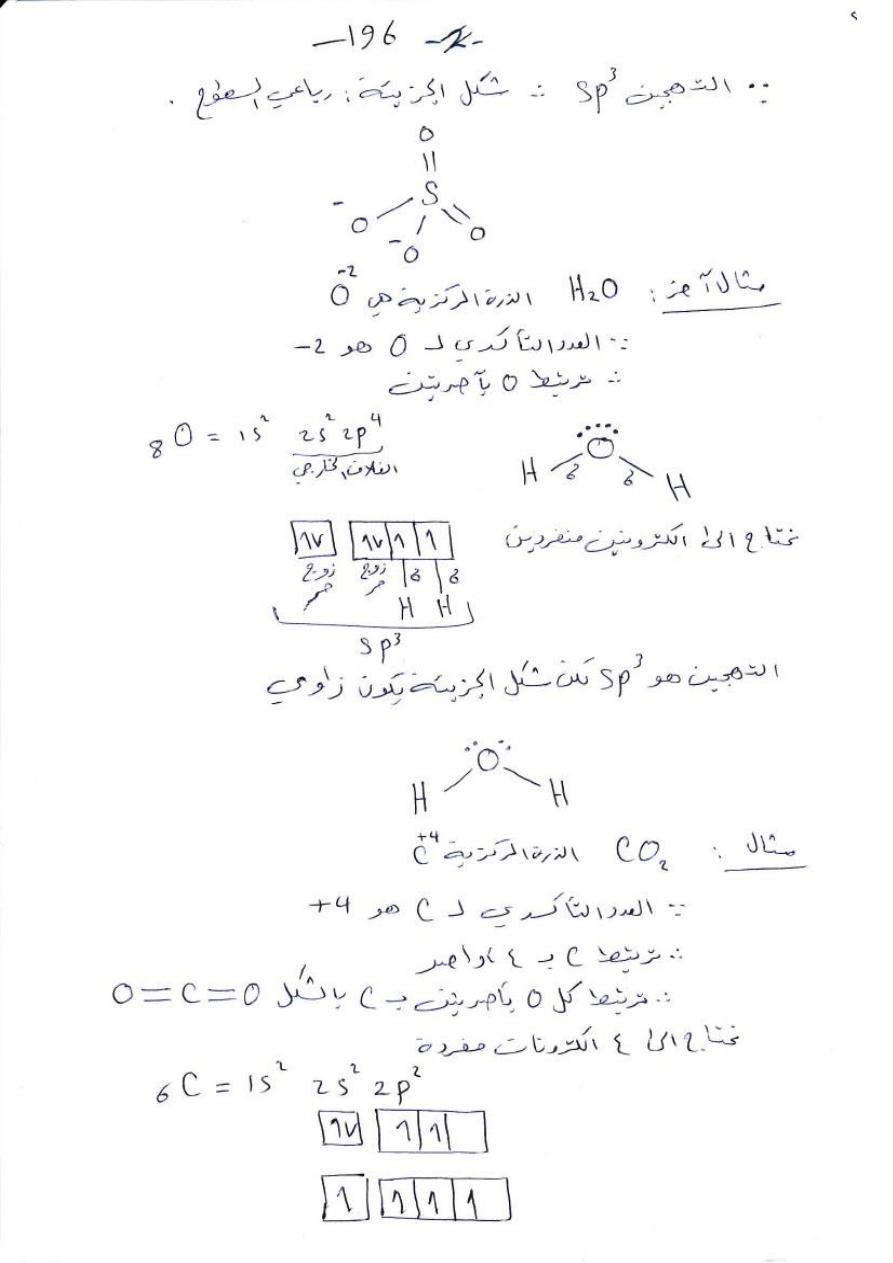 -2- 196-
∵ التهجين sp³ ∴ شكل الجزيئة : رباعي السطوح .
O
||
S
-O -O O
مثال آخر : H₂O الذرة المركزية هي O⁻²
∵ العدد التأكسدي لـ O هو 2-
∴ ترتبط O بآصرتين
₈O = 1s² 2s² 2p⁴
الغلاف الخارجي
O
H 6 6 H
نحتاج الى الكترونين منفردين
1v 1v 1 1
زوج حر زوج حر 6 6
H H
sp³
التهجين هو sp³ لكن شكل الجزيئة يكون زاوي
O
H H
مثال : CO₂ الذرة المركزية C⁺⁴
∵ العدد التأكسدي لـ C هو 4+
∴ ترتبط C بـ ٤ اواصر
∴ ترتبط كل O بآصرتين بـ C بالشكل O=C=O
نحتاج الى ٤ الكترونات مفردة
₆C = 1s² 2s² 2p²
1v 1 1
1 1 1 1